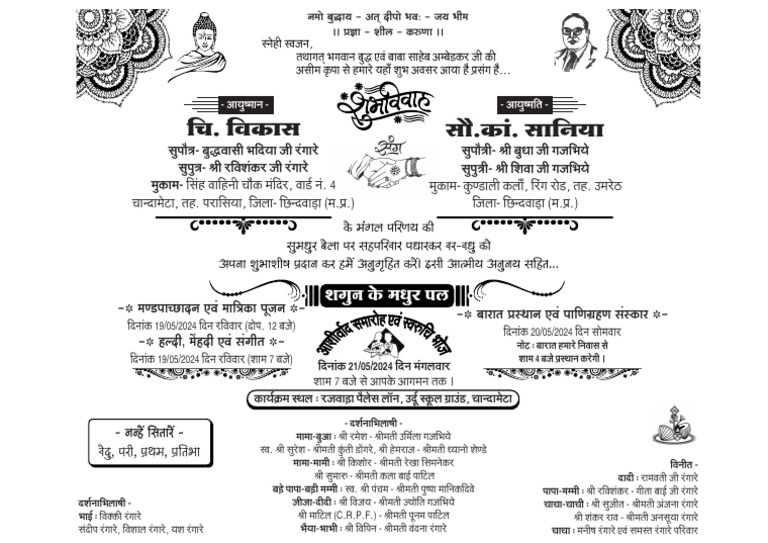 नमो बुद्धाय – अत् दीपो भवः – जय भीम
।। प्रज्ञा – शील – करुणा ।।
स्नेही स्वजन,
तथागत भगवान बुद्ध एवं बाबा साहेब अम्बेडकर जी की
असीम कृपा से हमारे यहाँ शुभ अवसर आया है प्रसंग है...
शुभविवाह
- आयुष्मान -
चि. विकास
सुपौत्र- बुद्धवासी भदिया जी रंगारे
सुपुत्र- श्री रविशंकर जी रंगारे
मुकाम- सिंह वाहिनी चौक मंदिर, वार्ड नं. 4
चान्दामेटा, तह. परासिया, जिला- छिन्दवाड़ा (म.प्र.)
संग
- आयुष्मति -
सौ.कां. सानिया
सुपौत्री- श्री बुधा जी गजभिये
सुपुत्री- श्री शिवा जी गजभिये
मुकाम- कुण्डाली कलाँ, रिंग रोड, तह. उमरेठ
जिला- छिन्दवाड़ा (म.प्र.)
के मंगल परिणय की
सुमधुर बेला पर सहपरिवार पधारकर वर-वधु को
अपना शुभाशीष प्रदान कर हमें अनुगृहित करें। इसी आत्मीय अनुनय सहित...
शगुन के मधुर पल
-❊ मण्डपाच्छादन एवं मात्रिका पूजन ❊-
दिनांक 19/05/2024 दिन रविवार (दोप. 12 बजे)
-❊ हल्दी, मेंहदी एवं संगीत ❊-
दिनांक 19/05/2024 दिन रविवार (शाम 7 बजे)
आशीर्वाद समारोह एवं स्वरुचि भोज
दिनांक 21/05/2024 दिन मंगलवार
शाम 7 बजे से आपके आगमन तक ।
-❊ बारात प्रस्थान एवं पाणिग्रहण संस्कार ❊-
दिनांक 20/05/2024 दिन सोमवार
नोट : बारात हमारे निवास से
शाम 4 बजे प्रस्थान करेगी ।
कार्यक्रम स्थल : रजवाड़ा पैलेस लॉन, उर्दू स्कूल ग्राउंड, चान्दामेटा
- नन्हें सितारें -
वेदु, परी, प्रथम, प्रतिभा
दर्शनाभिलाषी -
भाई : विक्की रंगारे
संदीप रंगारे, विशाल रंगारे, यश रंगारे
- दर्शनाभिलाषी -
मामा-बुआ : श्री रमेश - श्रीमती उर्मिला गजभिये
स्व. श्री सुरेश - श्रीमती कुंती डोंगरे, श्री हेमराज - श्रीमती ध्यानो शेण्डे
मामा-मामी : श्री किशोर - श्रीमती रेखा सिमनेकर
श्री सुमारु - श्रीमती कला बाई पाटिल
बड़े पापा-बड़ी मम्मी : स्व. श्री पंचम - श्रीमती पुष्पा मानिकदिवे
जीजा-दीदी : श्री विजय - श्रीमती ज्योति गजभिये
श्री माटिल (C.R.P.F.) - श्रीमती पूनम पाटिल
भैया-भाभी : श्री विपिन - श्रीमती वंदना रंगारे
विनीत -
दादी : रामवती जी रंगारे
पापा-मम्मी : श्री रविशंकर - गीता बाई जी रंगारे
चाचा-चाची : श्री सुजीत - श्रीमती अंजना रंगारे
श्री शंकर राव - श्रीमती अनसूया रंगारे
चाचा : मनीष रंगारे एवं समस्त रंगारे परिवार